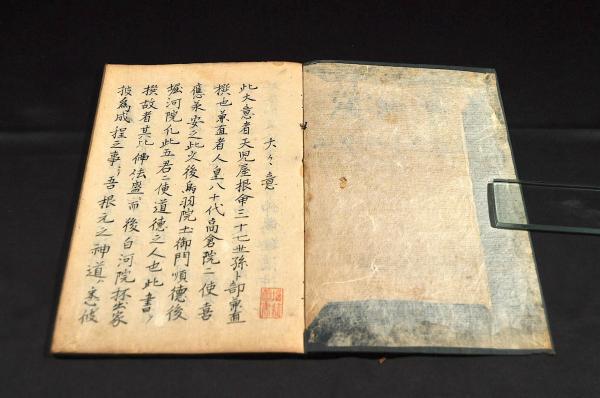 大意
此大意者天児屋根命三十七世孫卜部兼直
撰也兼直者人皇八十代高倉院ニ使喜
應承安之比次後鳥羽院土御門順德後
堀河院化此五君ニ使道德之人也此書
撰故者其比佛法盛而後白河院抔出家
被為成程之事吾根元之神道悉佊